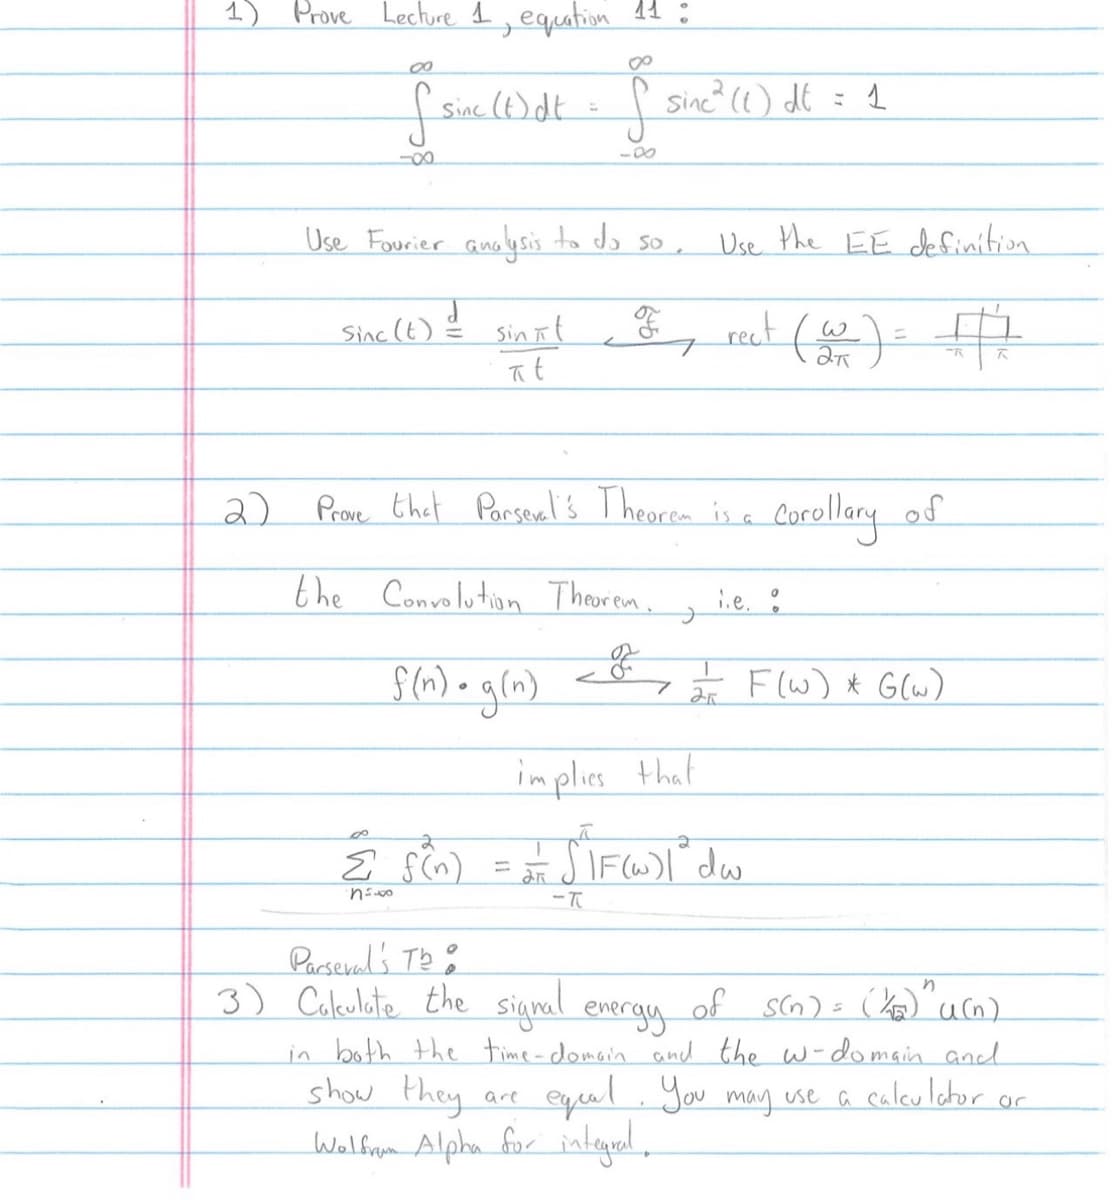 1) Prove Lecture 1, equation 11 :
∞ ∞
∫ sinc(t) dt = ∫ sinc²(t) dt = 1
-∞ -∞
Use Fourier analysis to do so. Use the EE definition
sinc(t) d= sin πt / πt ⟷ℱ rect (ω/2π) = 1 -π π
2) Prove that Parseval's Theorem is a corollary of
the Convolution Theorem. , i.e. :
f(n) • g(n) ⟷ℱ 1/2π F(ω) * G(ω)
implies that
∞ π
Σ f²(n) = 1/2π ∫ |F(ω)|² dω
n=-∞ -π
Parseval's Th :
3) Calculate the signal energy of s(n) = (1/√2)ⁿ u(n)
in both the time-domain and the ω-domain and
show they are equal. You may use a calculator or
Wolfram Alpha for integral.